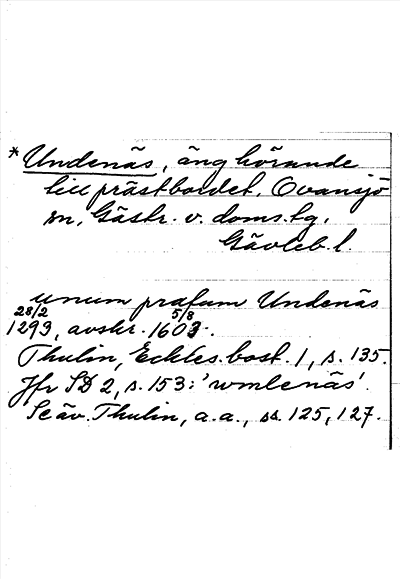 * Undenäs, äng hörande
till prästbordet, Ovansjö
sn, Gästr. v. doms.hg,
Gävleb. l.
unum prafam Undenäs
28/2 5/8
1293, avskr. 1603.
Thulin, Eckles. bost. 1, s. 135.
Jfr SD 2, s. 153: 'wmlenäs'.
Se äv. Thulin, a.a., ss. 125, 127.